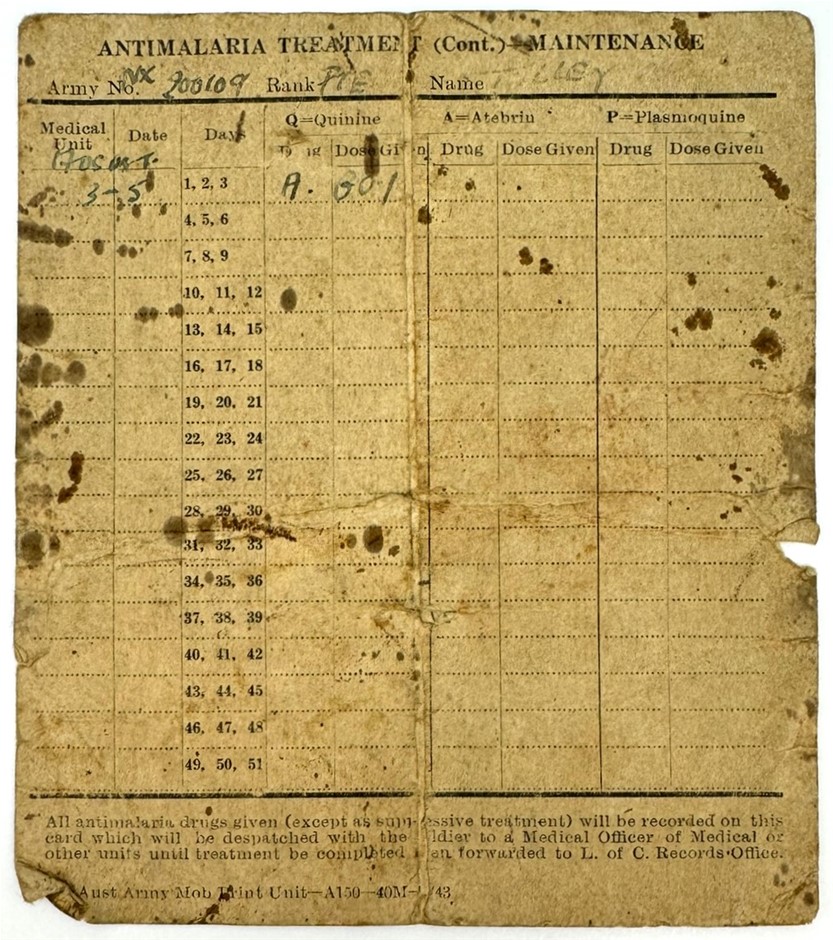 ANTIMALARIA TREATMENT (Cont.)—MAINTENANCE
Army No. NX 200109 Rank PTE Name TILLEY
Q=Quinine A=Atebrin P=Plasmoquine
Medical Unit Date Days Drug Dose Given Drug Dose Given Drug Dose Given
3-5 1, 2, 3 A.
4, 5, 6
7, 8, 9
10, 11, 12
13, 14, 15
16, 17, 18
19, 20, 21
22, 23, 24
25, 26, 27
28, 29, 30
31, 32, 33
34, 35, 36
37, 38, 39
40, 41, 42
43, 44, 45
46, 47, 48
49, 50, 51
All antimalaria drugs given (except as suppressive treatment) will be recorded on this
card which will be despatched with the soldier to a Medical Officer of Medical or
other units until treatment be completed forwarded to L. of C. Records Office.
Aust Army Mob Print Unit—A150—40M— /43